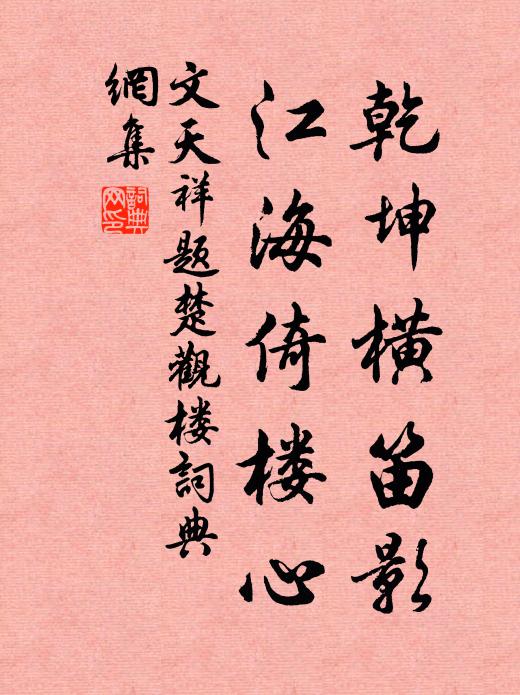 乾坤横笛影
江海倚楼心
文天祥题楚觀楼詞典
網集
詞典网印